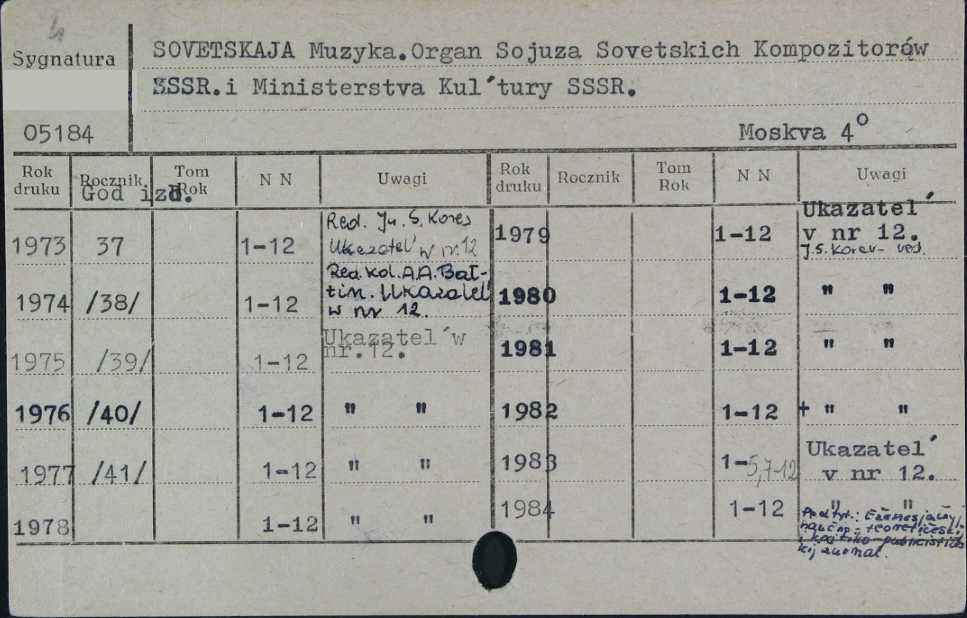 Sygnatura
05184
SOVETSKAJA Muzyka.Organ Sojuza Sovetskich Kompozitorów
SSSR.i Ministerstva Kul´tury SSSR.
Moskva 4°
Rok druku Rocznik Tom Rok N N Uwagi Rok druku Rocznik Tom Rok N N Uwagi
God izd.
1973 37 1-12 Red. Ju. S. Korev
Ukazatel´ w nr 12
1974 /38/ 1-12 Red. kol. A.A. Bal-
tin. Ukazatel´
w nr 12.
1975 /39/ 1-12 Ukazatel´w
nr.12.
1976 /40/ 1-12 " "
1977 /41/ 1-12 " "
1978 1-12 " "
1979 1-12 Ukazatel´
v nr 12.
J.S. Korev - red.
1980 1-12 " "
1981 1-12 " "
1982 1-12 + " "
1983 1-5,7-12 Ukazatel´
v nr 12.
1984 1-12 " "
Podtyt.: Ežemesjačnyj
naučno-teoretičeskij
i kritiko-publicističes
kij žurnal.